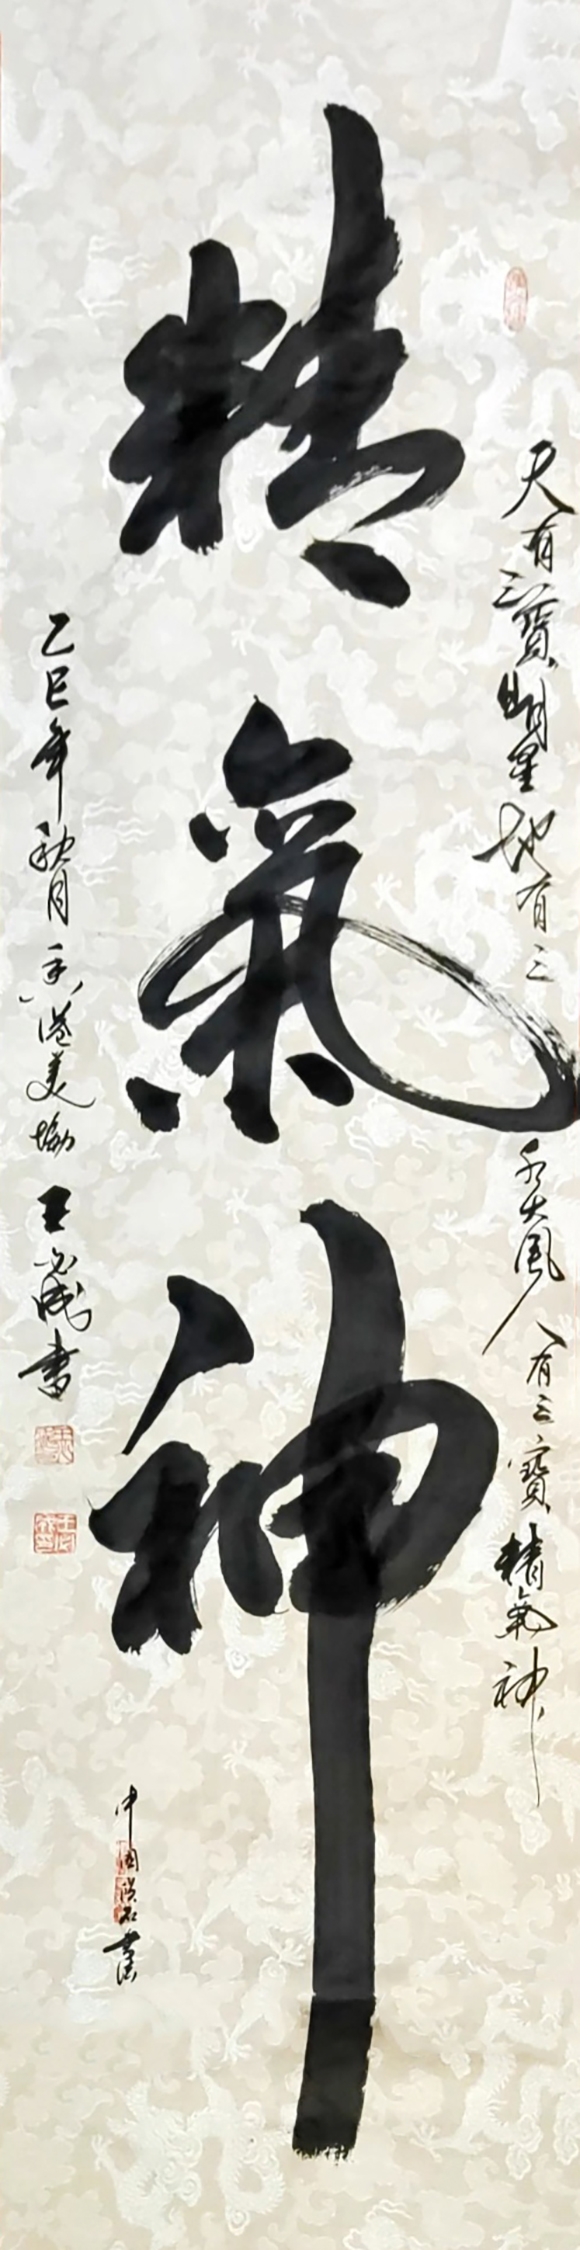 天有三寶明星地有三
水火風人有三寶精氣神
精氣神
乙巳年秋月香港美協
王成書
中國書法